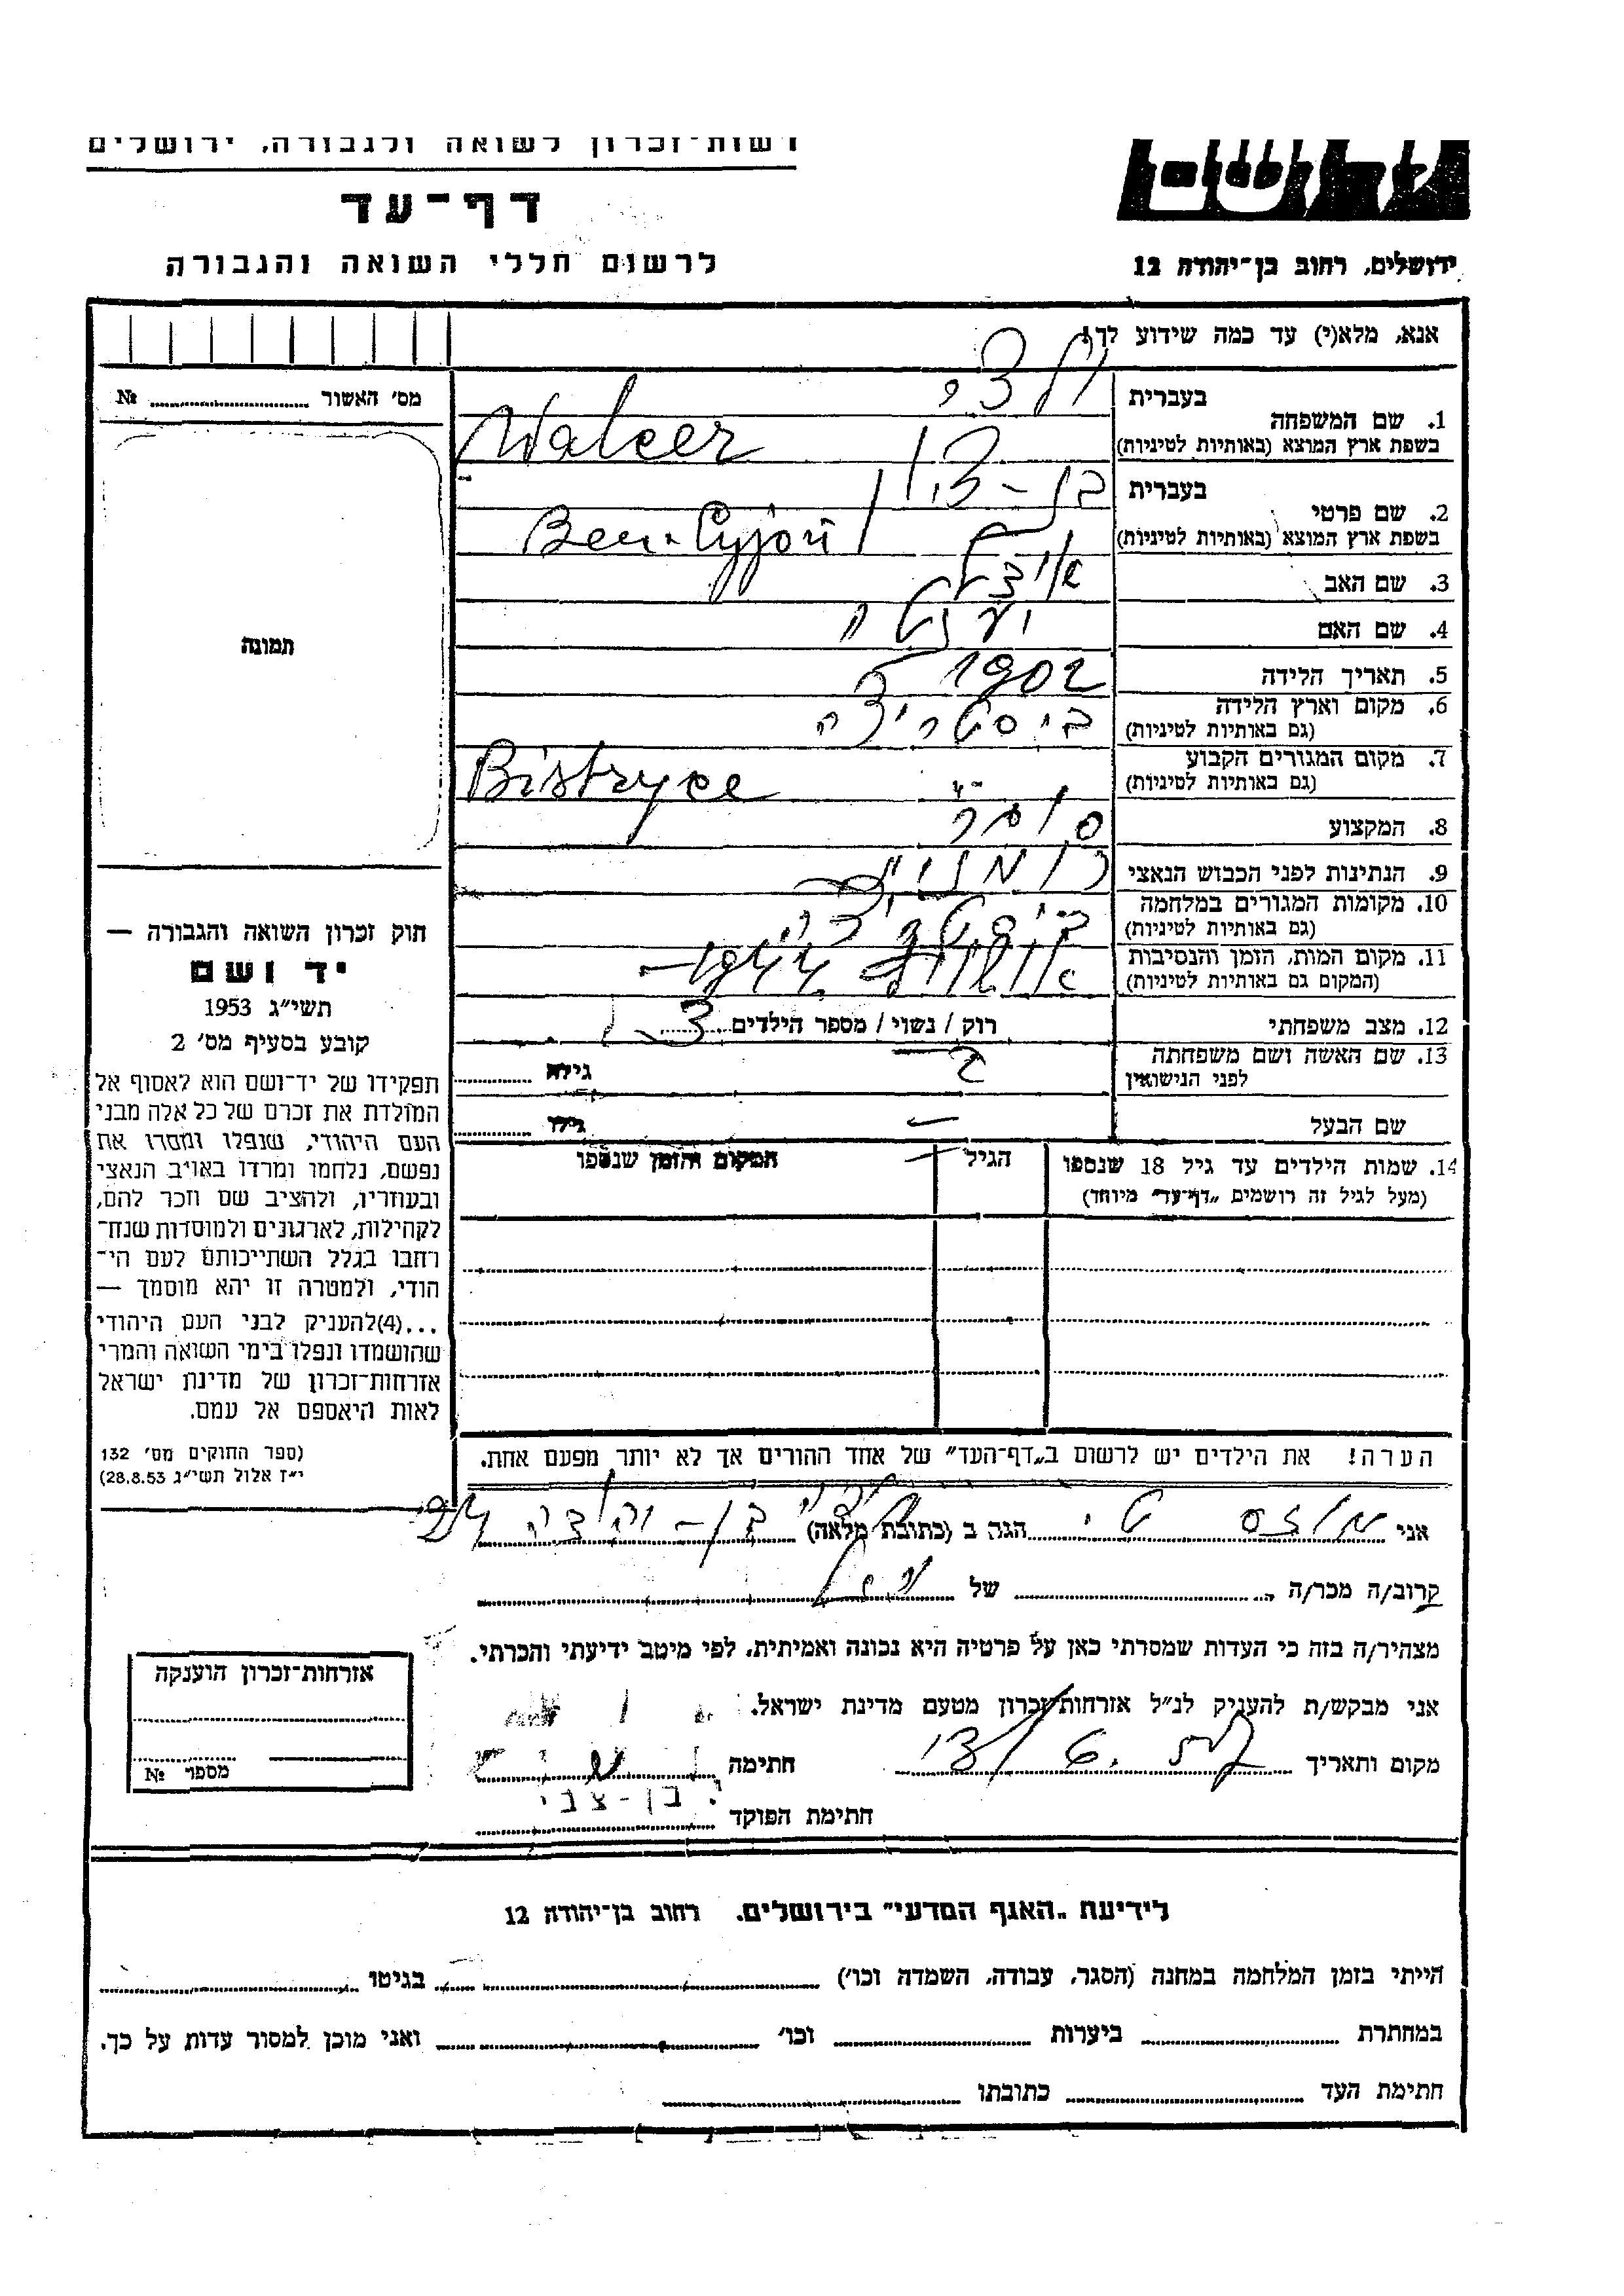 רשות-זכרון לשואה ולגבורה, ירושלים
דף-עד
לרשום חללי השואה והגבורה
ירושלים, רחוב בן-יהודה 12
אנא, מלא(י) עד כמה שידוע לך!
בעברית
1. שם המשפחה
בשפת ארץ המוצא (באותיות לטיניות)
Walcer
בעברית בן-ציון
2. שם פרטי
בשפת ארץ המוצא (באותיות לטיניות)
Ben-Cyjon
3. שם האב
4. שם האם
5. תאריך הלידה 1902
6. מקום וארץ הלידה ביסטריצה
(גם באותיות לטיניות)
7. מקום המגורים הקבוע
(גם באותיות לטיניות)
Bistryce
8. המקצוע סוחר
9. הנתינות לפני הכבוש הנאצי
10. מקומות המגורים במלחמה
(גם באותיות לטיניות)
11. מקום המות, הזמן והנסיבות 1944
(המקום גם באותיות לטיניות)
12. מצב משפחתי רוק / נשוי / מספר הילדים
13. שם האשה ושם משפחתה
לפני הנישואין גילה
שם הבעל גילו
14. שמות הילדים עד גיל 18 שנספו הגיל המקום והזמן שנספו
(מעל לגיל זה רושמים "דף-עד" מיוחד)
הערה! את הילדים יש לרשום ב"דף-העד" של אחד ההורים אך לא יותר מפעם אחת.
מס' האשור №
תמונה
חוק זכרון השואה והגבורה —
יד ושם
תשי"ג 1953
קובע בסעיף מס' 2
תפקידו של יד-ושם הוא לאסוף אל
המולדת את זכרם של כל אלה מבני
העם היהודי, שנפלו ומסרו את
נפשם, נלחמו ומרדו באויב הנאצי
ובעוזריו, ולהציב שם וזכר להם,
לקהילות, לארגונים ולמוסדות שנח-
רחבו בגלל השתייכותם לעם הי-
הודי, ולמטרה זו יהא מוסמך —
...(4)להעניק לבני העם היהודי
שהושמדו ונפלו בימי השואה והמרי
אזרחות-זכרון של מדינת ישראל
לאות היאספם אל עמם.
(ספר החוקים מס' 132
י"ז אלול תשי"ג 28.8.53)
אני הגר ב (כתובת מלאה)
קרוב/ה מכר/ה של
מצהיר/ה בזה כי העדות שמסרתי כאן על פרטיה היא נכונה ואמיתית, לפי מיטב ידיעתי והכרתי.
אני מבקש/ת להעניק לנ"ל אזרחות-זכרון מטעם מדינת ישראל.
מקום ותאריך חתימה
י. בן-צבי
חתימת הפוקד
אזרחות-זכרון הוענקה
מספר №
לידיעת "האגף המדעי" בירושלים, רחוב בן-יהודה 12
הייתי בזמן המלחמה במחנה (הסגר, עבודה, השמדה וכו') בגיטו
במחתרת ביערות וכו' ואני מוכן למסור עדות על כך.
חתימת העד כתובתו